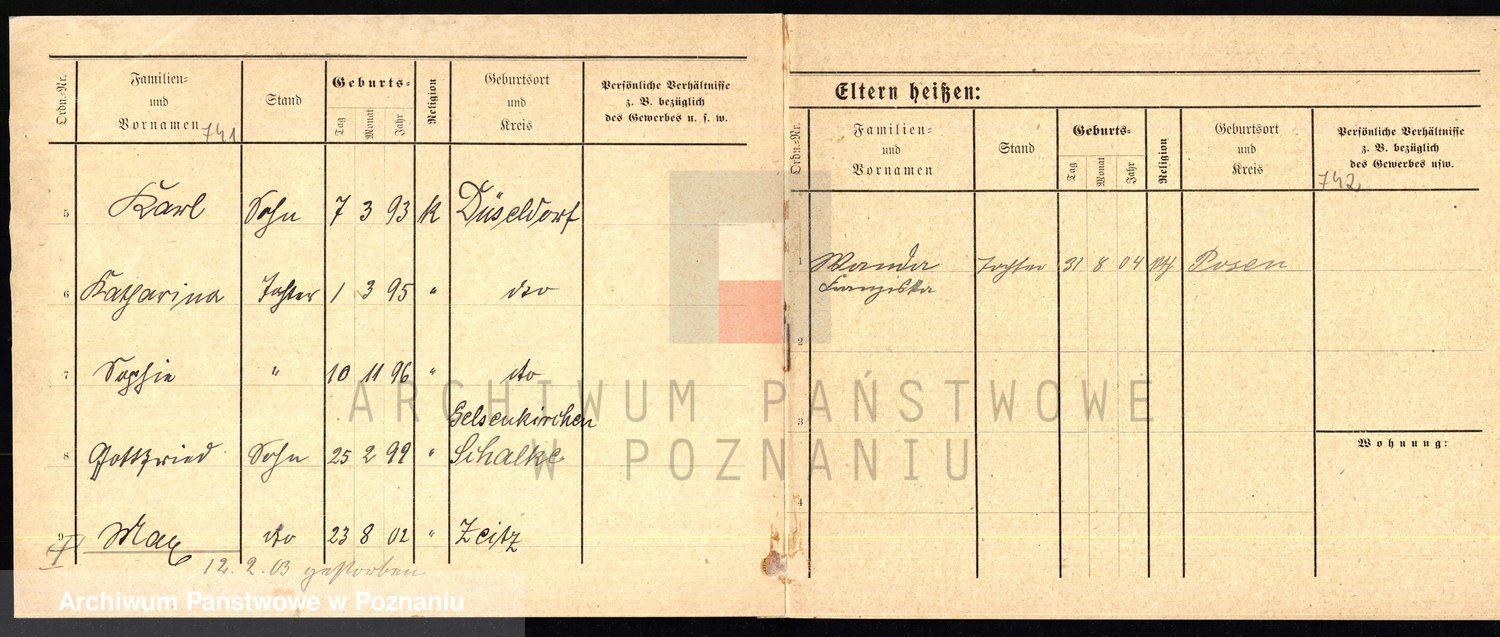 Ordn.-Nr. Familien- und Vornamen 741 Stand Geburts- Tag Monat Jahr Religion Geburtsort und Kreis Persönliche Verhältnisse z. B. bezüglich des Gewerbes u. s. w.
5 Karl Sohn 7 3 93 K Düseldorf
6 Katharina Tochter 1 3 95 " dto
7 Sophie " 10 11 96 " dto
Gelsenkirchen
8 Gottfried Sohn 25 2 99 " Schalke
9 Max dto 23 8 02 " Zeitz
12. 2. 03 gestorben
Eltern heißen:
Ordn.-Nr. Familien- und Vornamen Stand Geburts- Tag Monat Jahr Religion Geburtsort und Kreis Persönliche Verhältnisse z. B. bezüglich des Gewerbes usw.
742
1 Wanda Tochter 31 8 04 kth Posen
Franziska
2
3
Wohnung:
4
ARCHIWUM PAŃSTWOWE
W POZNANIU
Archiwum Państwowe w Poznaniu